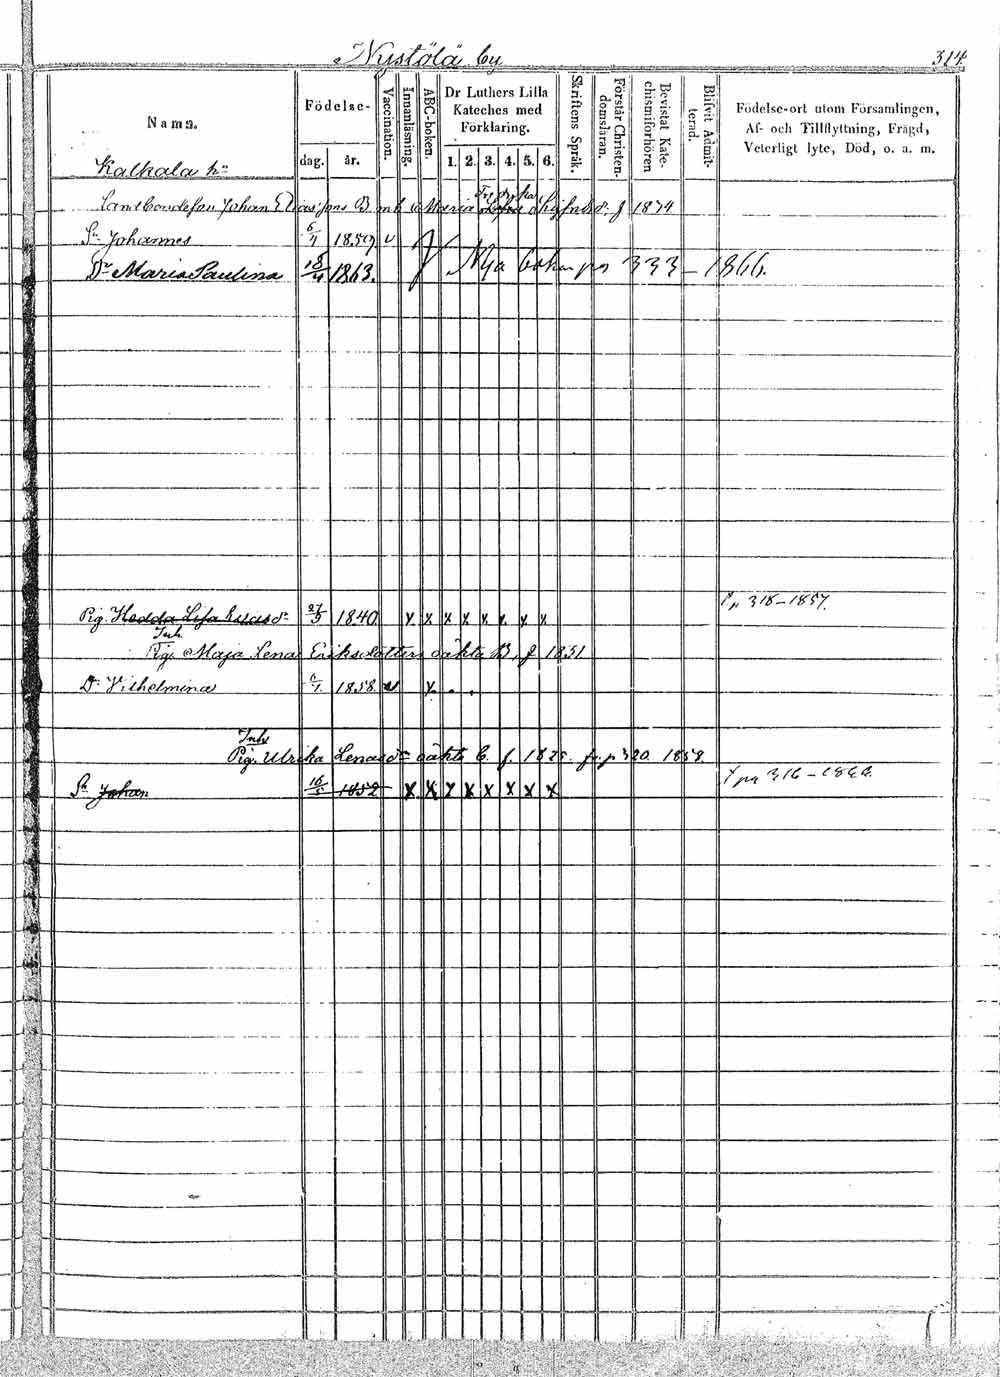 Nystölä by
314
Namn.
Födelse-
dag.
år.
Vaccination.
Innanläsning.
ABC-boken.
Dr Luthers Lilla
Kateches med
Förklaring.
1. 2. 3. 4. 5. 6.
Skriftens Språk.
Förstår Christen-
domsläran.
Bevistat Kate-
chismiförhören
Blifvit Admit-
terad.
Födelse-ort utom Församlingen,
Af- och Tillflyttning, Frägd,
Veterligt lyte, Död, o. a. m.
Kalkala hn
Johan Elias Jons B. Maria f 1834
Sn Johannes 1859 v
Dr Maria Paulina 18/4 1863. Nya boken pag 333 – 1866.
p 318 – 1857.
Pig. Hedda Lisa 27/5 1840. x x x x x x x x
Inh.
Pig. Maja Lena Eriksdotters oäkta B, f 1831
Dr Vilhelmina 1858. v x . .
Inh
Pig. Ulrika Lenasdr oäkta b. f. 1825. fr. p 320. 1859.
pag 316 –
Sn Johan 16/5 1852 x x x x x x x x